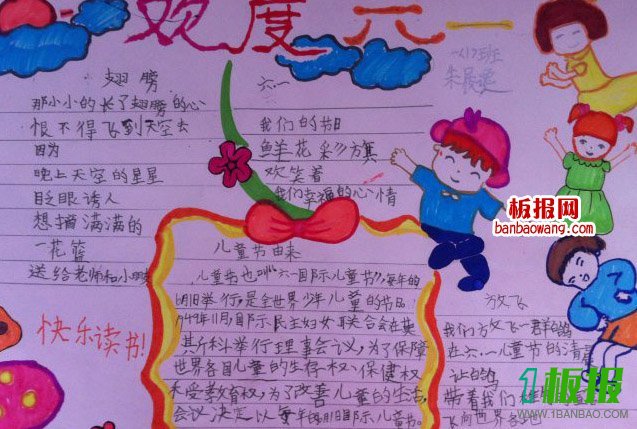 欢度六一
一(1)班
翅膀
那小小的长了翅膀的心
恨不得飞到天空去
因为
晚上天空的星星
眨眼诱人
想摘满满的
一花篮
送给老师和小朋友
快乐读书!
六.一
我们的节日
鲜花彩旗
欢笑着
我们幸福的心情
儿童节由来
儿童节也叫"六一国际儿童节",每年的
6月1日举行,是全世界少年儿童的节日。
1949年11月,国际民主妇女联合会在莫
斯科举行理事会议,为了保障
世界各国儿童的生存权、保健权
和受教育权,为了改善儿童的生活,
会议决定以每年的6月1日国际儿童节。
放飞
我们放飞一群白鸽
在六.一儿童节的清晨
让白鸽
带着我们
飞向世界各地
板报网
banbaowang.com
1板报
WWW.1BANBAO.COM